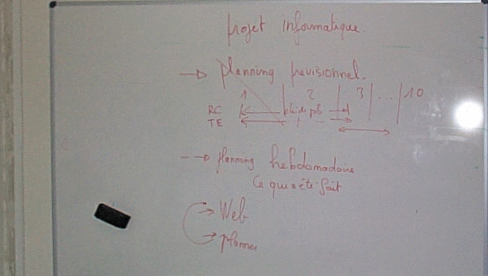 projet informatique.
→ planning previsionnel.
1 | 2 | 3 | ... | 10
RC
TE
--→ planning hebdomadaire
Ce qui a été fait
→ Web